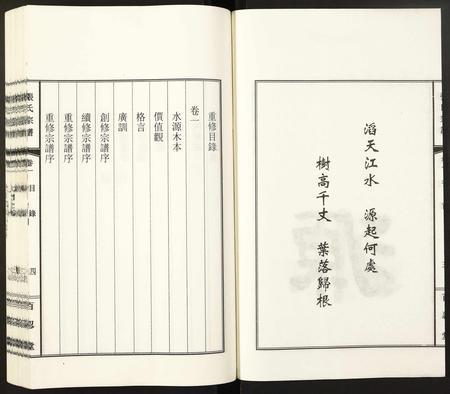 滔天江水　源起何處
樹高千丈　葉落歸根
重修目錄
卷一
水源木本
價值觀
格言
廣訓
創修宗譜序
續修宗譜序
重修宗譜序
重修宗譜序
張氏宗譜
卷一目錄
四
百忍堂